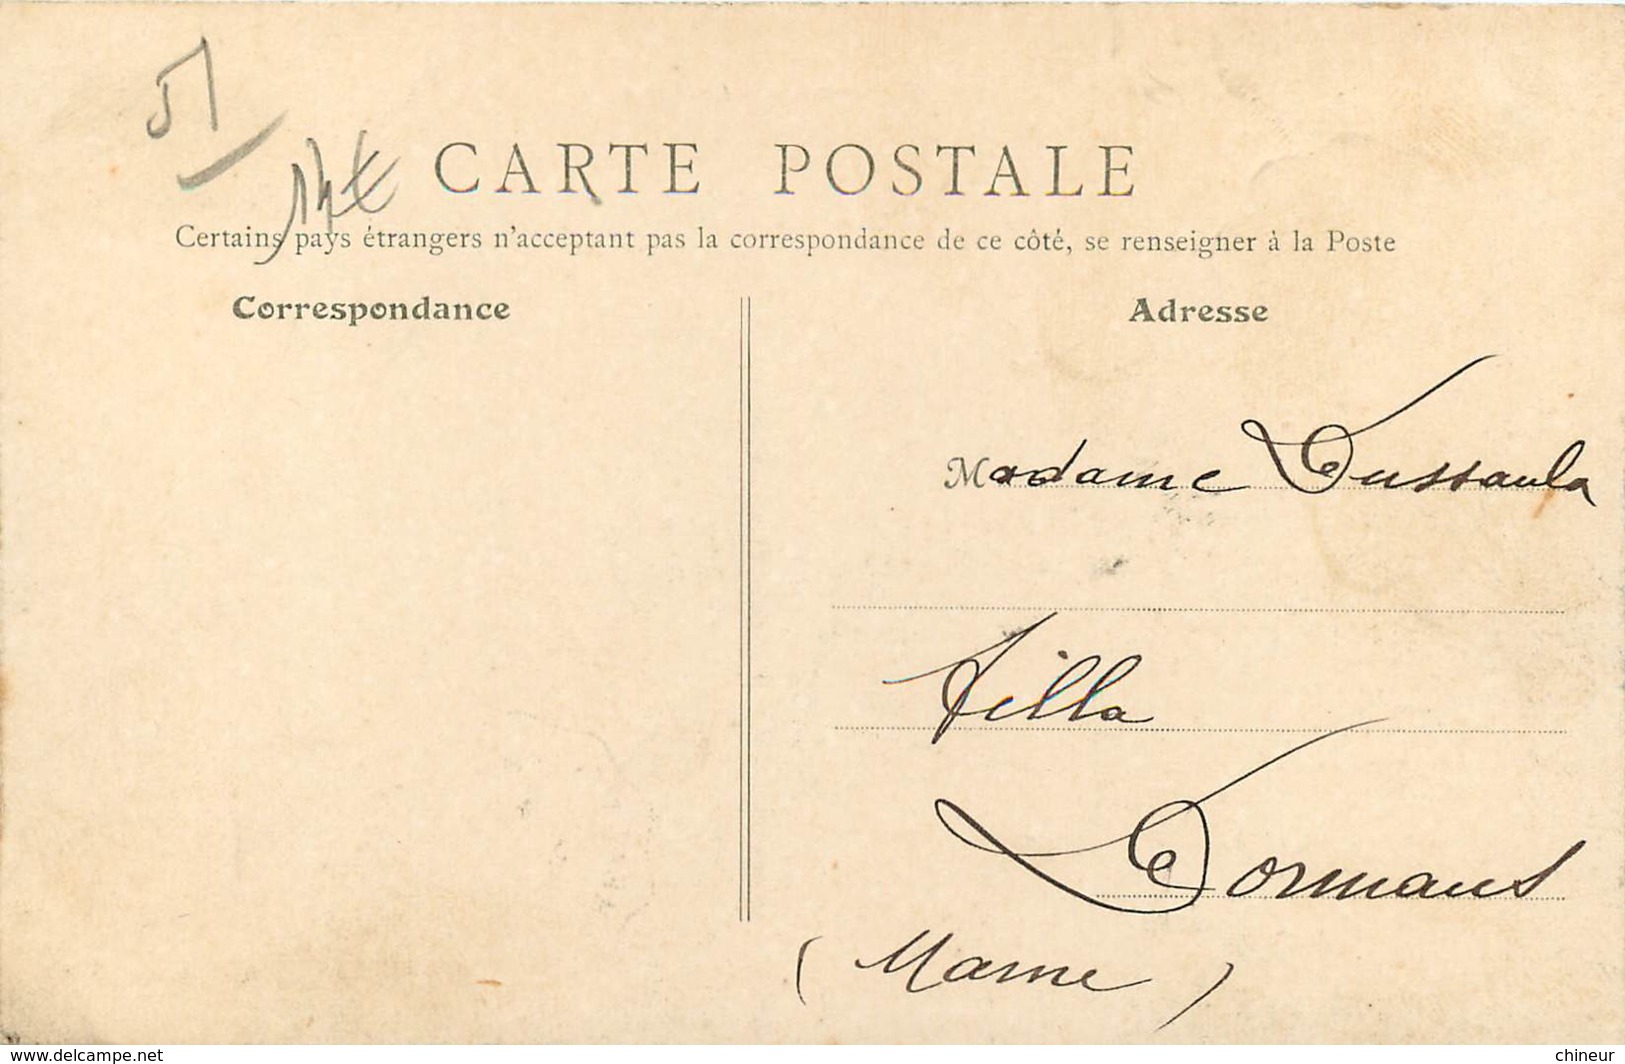 51
14€
CARTE POSTALE
Certains pays étrangers n'acceptant pas la correspondance de ce côté, se renseigner à la Poste
Correspondance
Adresse
Madame Dussaula
Villa
Dormans
(Marne)
www.delcampe.net
chineur